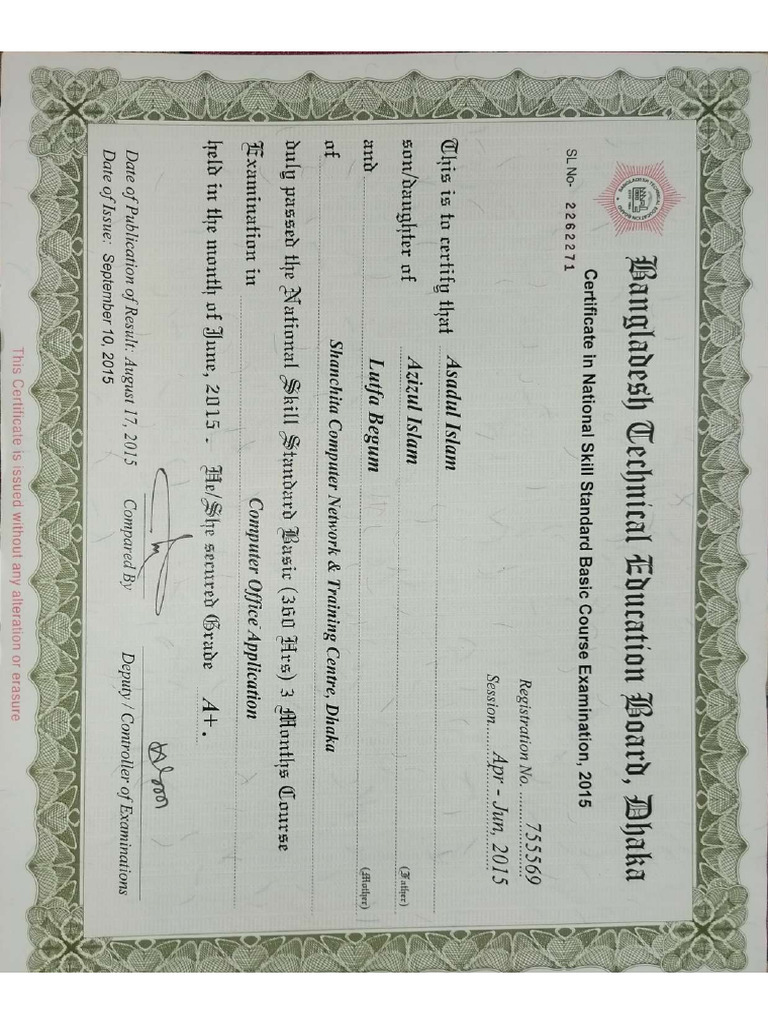 Bangladesh Technical Education Board, Dhaka
SL No- 2262271
Certificate in National Skill Standard Basic Course Examination, 2015
Registration No. 755569
Session Apr - Jun, 2015
This is to certify that Asadul Islam
son/daughter of Azizul Islam (Father)
and Lutfa Begum (Mother)
of Shanchita Computer Network & Training Centre, Dhaka
duly passed the National Skill Standard Basic (360 Hrs) 3 Months Course
Examination in Computer Office Application
held in the month of June, 2015 . He/She secured Grade A+.
Date of Publication of Result: August 17, 2015 Compared By
Date of Issue: September 10, 2015
Deputy / Controller of Examinations
This Certificate is issued without any alteration or erasure